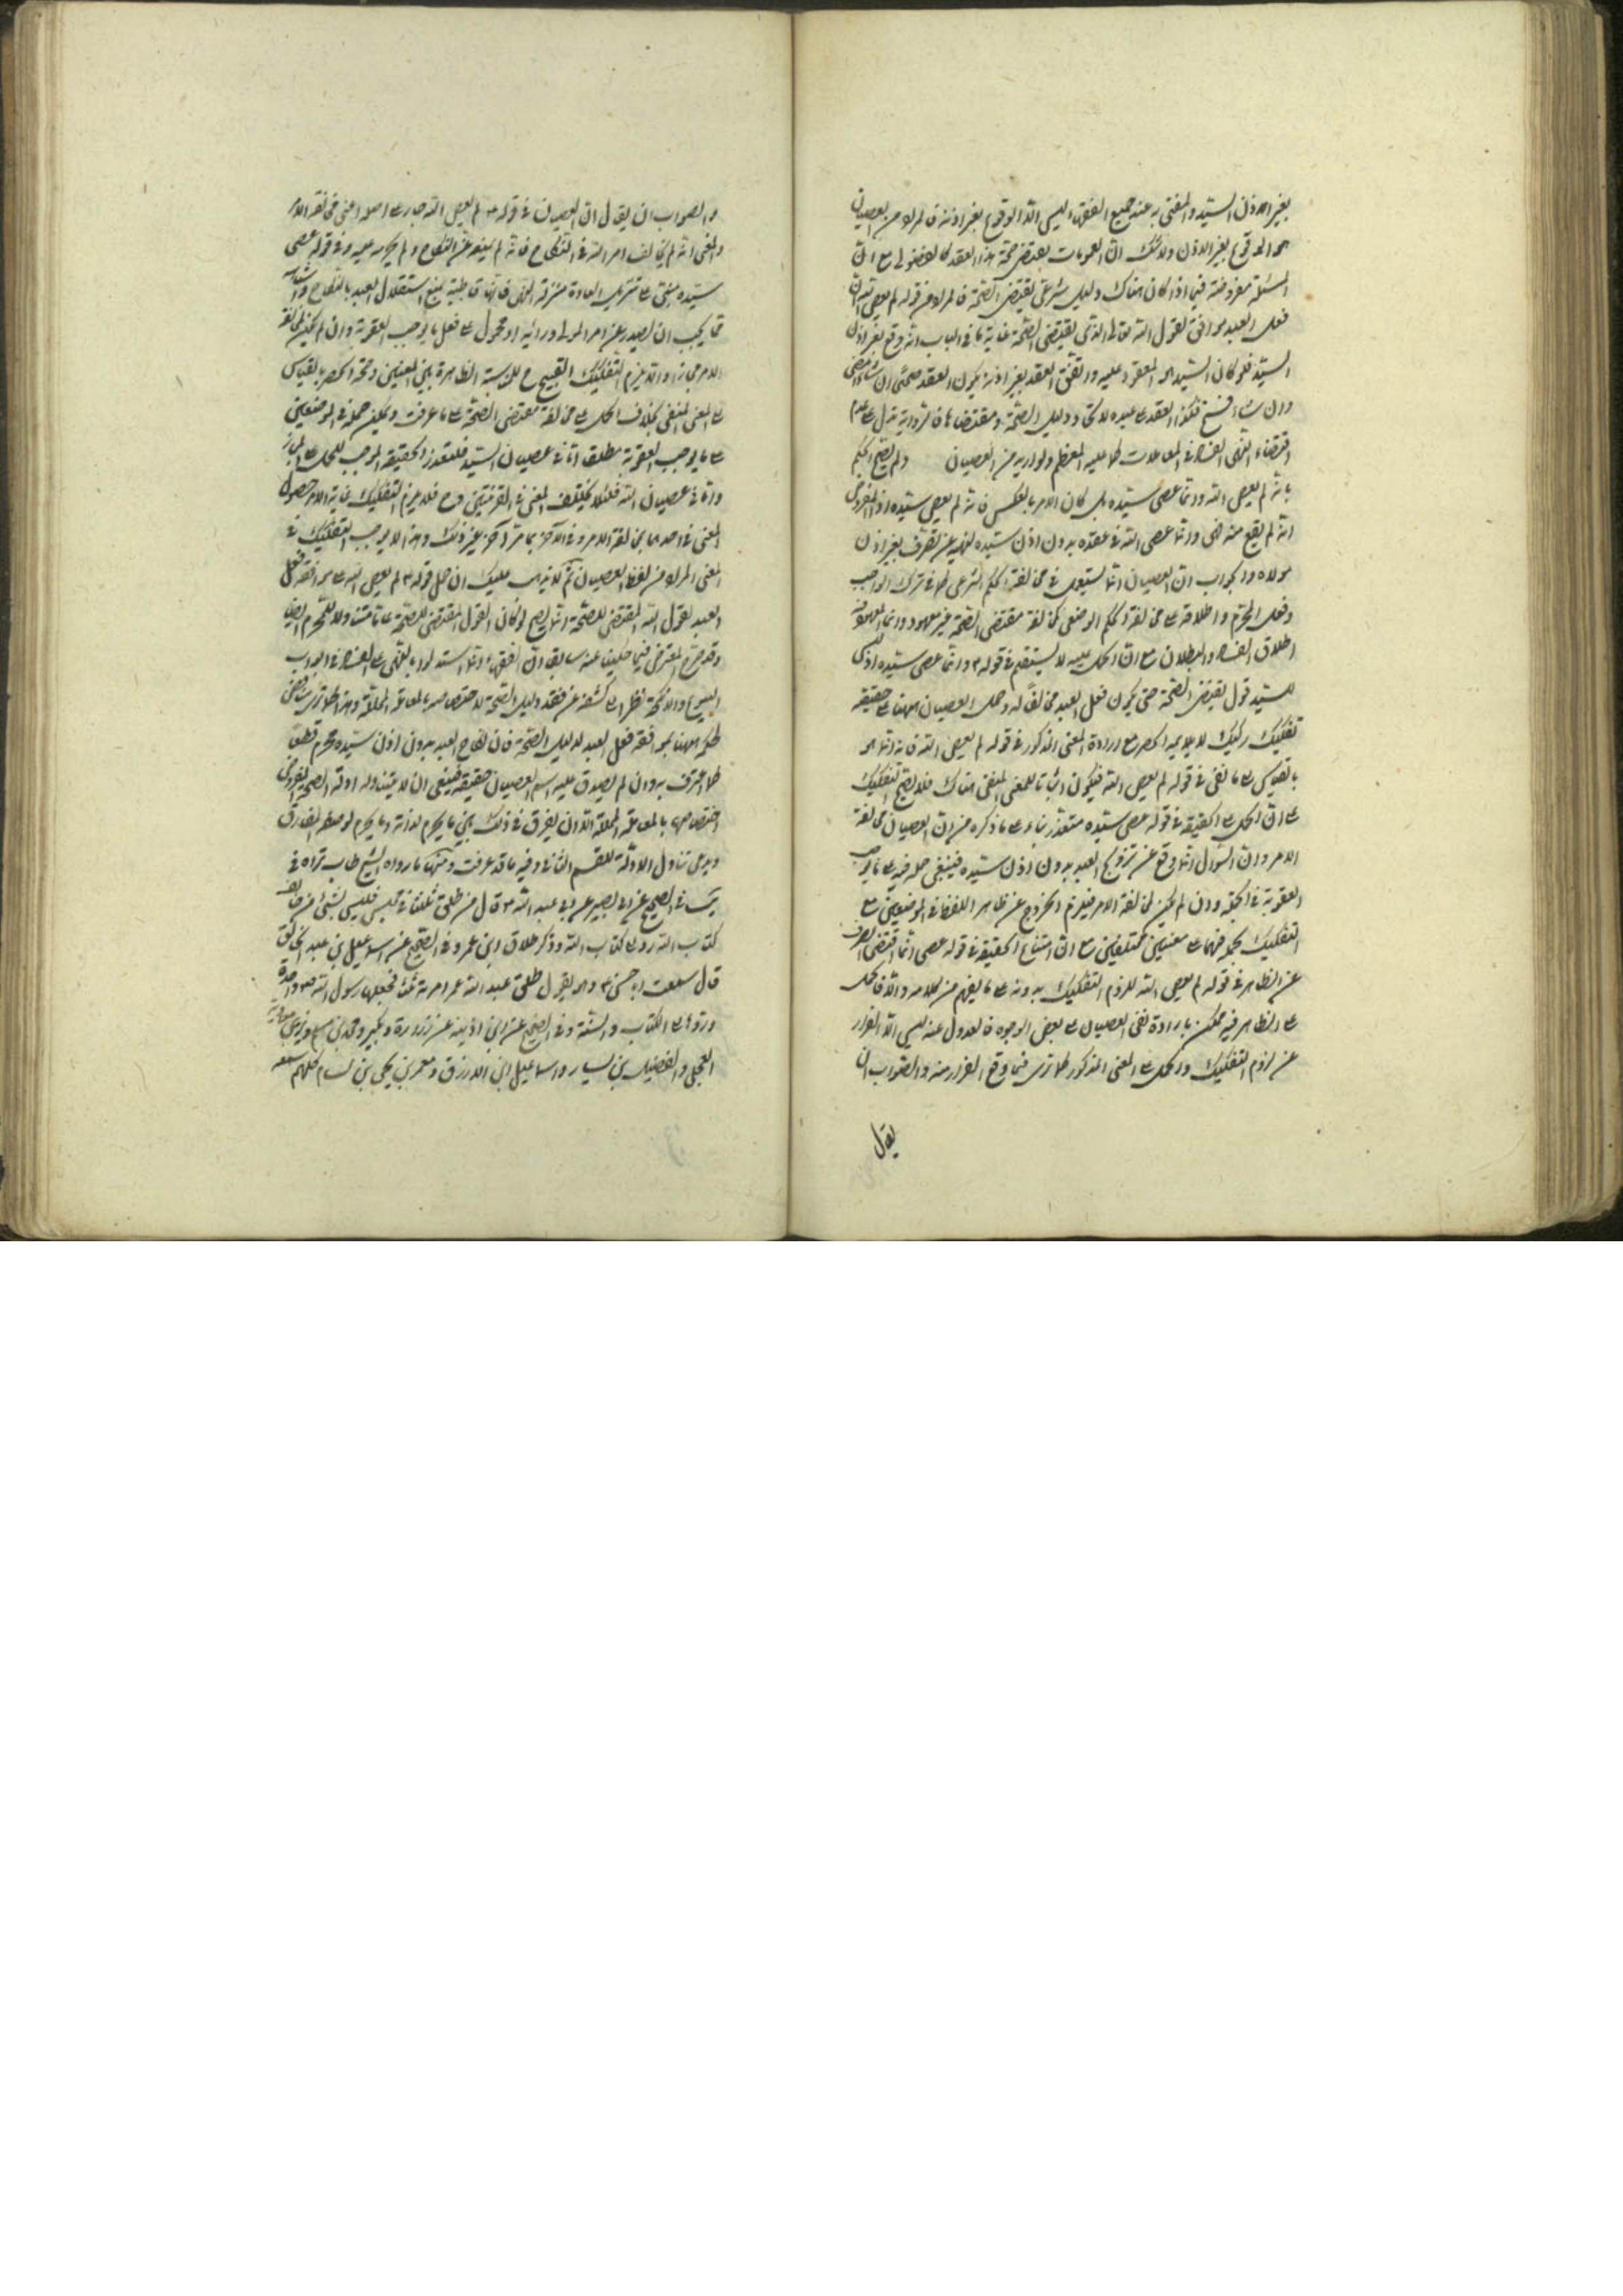 بغير اذن السيد والمفتى به عند جميع الفقهاء ليس الا الوقوع بغير اذنه فالمراد من العصيان
هو الوقوع بغير الاذن ولا شك ان العمومات يقتضى صحة هذا العقد كالفضولى مع ان
المسئلة مفروضة فيما اذا كان هناك دليل شرعى يقتضى الصحة فالمراد من قوله لم يعص الله ان
فعل العبد موافق لقول الله تعالى الذى يقتضى الصحة غاية ما فى الباب انه وقع بغير اذن
السيد فلو كان السيد هو المعقود عليه واتفق العقد بغير اذنه يكون العقد صحيحا ان شاء امضى
وان شاء فسخ فكذا العقد على عبده لاتحاد دليل الصحة ومقتضاها فالرواية تدل على عدم
اقتضاء النهى الفساد فى المعاملات كما عليه المعظم ولو اريد من العصيان ولم يصح الحكم
بانه لم يعص الله وانما عصى سيده بل كان الامر بالعكس فانه لم يعص سيده اذ المفروض
انه لم يقع منه نهى وانما عصى الله فى عقده بدون اذن سيده لنهيه عن التصرف بغير اذن
مولاه والجواب ان العصيان انما يستعمل فى مخالفة الحكم الشرعى كما فى ترك الواجب
وفعل المحرم واطلاقه على مخالفة الحكم الوضعى كمخالفة مقتضى الصحة غير معهود وانما المعهود فيه
اطلاق الفساد والبطلان مع ان الحمل عليه لا يستقيم فى قوله وانما عصى سيده اذ ليس
للسيد قول يقتضى الصحة حتى يكون فعل العبد مخالفا له وحمل العصيان ههنا على حقيقته
تفكيك ركيك لا يلايمه الحصر مع ارادة المعنى المذكور فى قوله لم يعص الله فانه انما هو
بالقياس على ما نفى فى قوله لم يعص الله فيكون اثباتا للمعنى المنفى هناك فلا يصح التفكيك
على ان الحمل على الحقيقة فى قوله عصى سيده متعذر بناء على ما ذكره من ان العصيان مخالفة
الامر وان السؤال انما وقع عن تزويج العبد بدون اذن سيده فينبغى حمله فيه على ما يوجب
العقوبة فى الجملة وان لم يكن لمخالفة الامر فيلزم الخروج عن ظاهر اللفظ فى الموضعين مع
التفكيك بحملهما على معنيين مختلفين مع ان امتناع الحقيقة فى قوله عصى انما اقتضى الصرف
عن الظاهر فى قوله لم يعص الله للزوم التفكيك بدونه على ما يفهم من كلامه والا فالحمل
على الظاهر فيه ممكن بارادة نفى العصيان على بعض الوجوه فالعدول عنه ليس الا الفرار
عن لزوم التفكيك والحمل على المعنى المذكور كما ترى فيما وقع الفرار منه والصواب ان
يقال
والصواب ان يقال ان العصيان فى قوله لم يعص الله جار على اصله اعنى مخالفة الامر
والمعنى انه لم يخالف امر الله فى النكاح فانه لم ينهه عن النكاح ولم يحرمه عليه وفى قوله عصى
سيده مبنى على تنزيل العادة منزلة النهى فانها قاضية بمنع استقلال العبد بالنكاح
مما يجب ان يصدر عن امر المولى ورايه او محمول على فعل ما يوجب العقوبة وان لم يكن لمخالفة
الامر مجازا ولا يلزم التفكيك القبيح للمناسبة الظاهرة بين المعنيين وصحة الحصر بالقياس
على المعنى المنفى بخلاف الحمل على مخالفة مقتضى الصحة على ما عرفت ويمكن حمله فى الموضعين
على ما يوجب العقوبة مطلقا اما فى عصيان السيد فلتعذر الحقيقة الموجب للحمل على المجاز
واما فى عصيان الله فلئلا يختلف المعنى فى القرينتين وح فلا يلزم التفكيك غاية الامر حصول
المعنى فى احدهما بمخالفة الامر وفى الاخر بما مر او غير ذلك وهذا لا يوجب التفكيك فى
المعنى المراد من لفظ العصيان ثم لا يذهب عليك ان حمل قوله لم يعص الله على موافقة فعل
العبد لقول الله المقتضى للصحة انما يصح لو كان القول المقتضى للصحة عاما متناولا للمحرم ايضا
وقد صرح المعترض فيما حكينا عنه سابقا ان الفقهاء انما استدلوا بالنهى على الفساد فى ابواب
البيوع والانكحة نظرا الى كشفه عن فقد دليل الصحة لاختصاصه بالمعاملة المحللة وهذا كما ترى يناقض
حكمه ههنا بموافقة فعل العبد لدليل الصحة فان نكاح العبد بدون اذن سيده محرم قطعا
كما اعترف به وان لم يصدق عليه اسم العصيان حقيقة فينبغى ان لا يتناوله ادلة الصحة المفروض
اختصاصها بالمعاملة المحللة الا ان يفرق فى ذلك بين ما يحرم لذاته وما يحرم لوصفه المفارق
ويدعى تناول الادلة للقسم الثانى وفيه ما قد عرفت ومنها ما رواه الشيخ طاب ثراه فى
يب فى الصحيح عن ابى بصير عن ابى عبد الله قال من طلق ثلثا فى مجلس فليس بشئ من خالف
كتاب الله رد الى كتاب الله وذكر طلاق ابن عمر وفى الصحيح عن اسمعيل بن عبد الخالق
قال سمعت ابا الحسن وهو يقول طلق عبد الله بن عمر امرأته ثلثا فجعلها رسول الله واحدة
وردها الى الكتاب والسنة وفى الصحيح عن ابن اذينة عن زرارة وبكير ومحمد بن مسلم وبريد بن معاوية
العجلى والفضيل بن يسار واسماعيل ابن الازرق ومعمر بن يحيى بن بسام كلهم سمعه